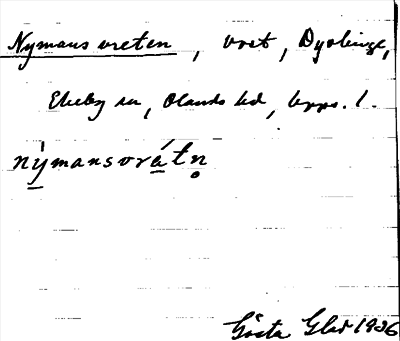 Nymansvreten, vret, Dyvlinge,
Ekeby sn, Olands hd, Upps. l.
nýmansvrátn̥
Gösta Glad 1936